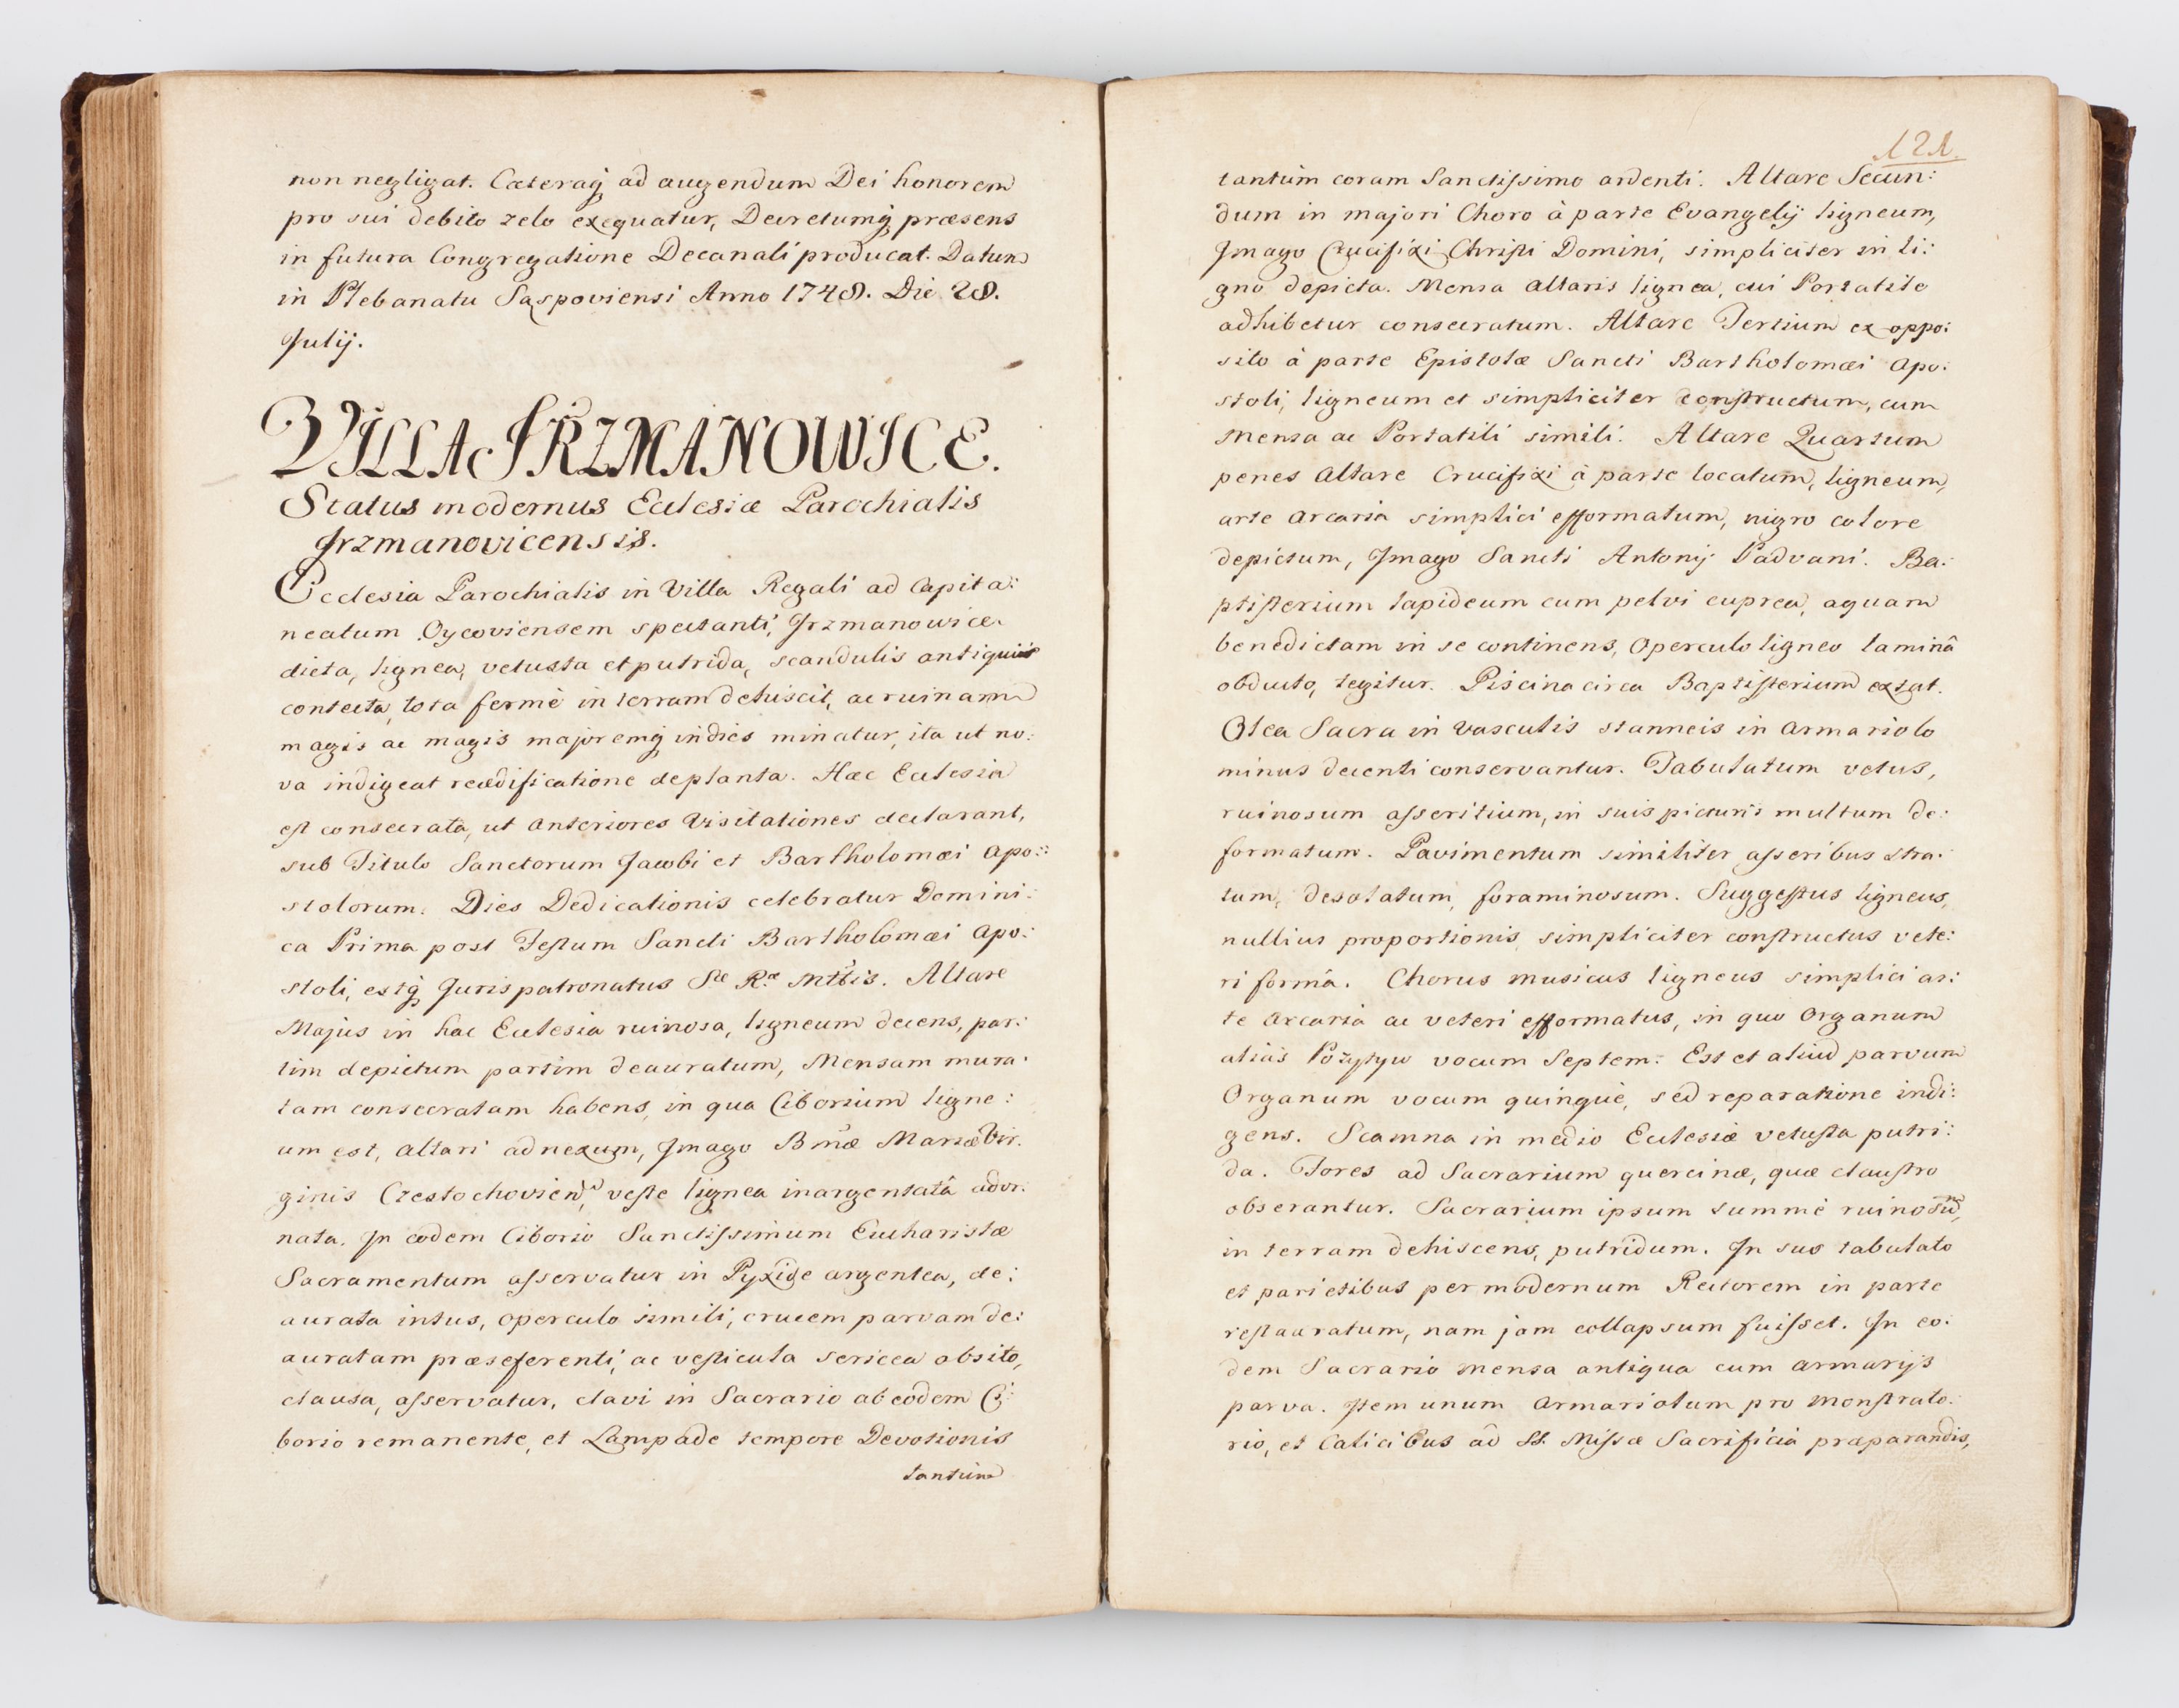 non negligat. Cæteraq́ ad augendum Dei honorem
pro sui debito zelo exequatur, Decretumq́ præsens
in futura Congregatione Decanali producat. Datum
in Plebanatu Saspoviensi Anno 1748. Die 28.
Julij.
VILLA JRZMANOWICE.
Status modernus Ecclesiæ Parochialis
Jrzmanovicensis.
Ecclesia Parochialis in Villa Regali ad Capita:
neatum Oycoviensem spectanti, Jrzmanowice
dicta, lignea, vetusta et putrida, scandulis antiquis
contecta, tota fermè in terram dehiscit, ac ruinam
magis ac magis majoremq́ indies minatur, ita ut no:
va indigeat reædificatione de planta. Hæc Ecclesia
est consecrata, ut anteriores Visitationes declarant,
sub Titulo Sanctorum Jacobi et Bartholomæi Apo:
stolorum. Dies Dedicationis celebratur Domini:
ca Prima post Festum Sancti Bartholomæi Apo:
stoli, estq́ Juris patronatus Sæ Ræ Mttis. Altare
Majus in hac Ecclesia ruinosa, ligneum decens, par:
tim depictum partim deauratum, Mensam mura:
tam consecratam habens, in qua Ciborium ligne:
um est, altari adnexum, Jmago Bmæ Mariæ Vir:
ginis Czestochovien, veste lignea inargentatâ ador:
nata. Jn eodem Ciborio Sanctissimum Eucharistæ
Sacramentum asservatur in Pyxide argentea, de:
aurata intus, operculo simili, crucem parvam de:
auratam præseferenti, ac vesticula sericea obsito,
clausa, asservatur, clavi in Sacrario ab eodem Ci:
borio remanente, et Lampade tempore Devotionis
tantùm
121.
tantùm coram Sanctissimo ardenti. Altare Secun:
dum in majori Choro à parte Evangelij ligneum,
Jmago Crucifixi Christi Domini, simpliciter in li:
gno depicta. Mensa altaris lignea, cui Portatile
adhibetur consecratum. Altare Tertium ex oppo:
sito à parte Epistolæ Sancti Bartholomæi Apo:
stoli, ligneum et simpliciter constructum, cum
Mensa ac Portatili simili. Altare Quartum
penes Altare Crucifixi à parte locatum, ligneum,
arte arcaria simplici efformatum, nigro colore
depictum, Jmago Sancti Antonij Padvani. Ba:
ptisterium lapideum cum pelvi cuprea, aquam
benedictam in se continens, operculo ligneo laminâ
obducto, tegitur. Piscina circa Baptisterium extat.
Olea Sacra in vasculis stanneis in armariolo
minus decenti conservantur. Tabulatum vetus,
ruinosum asseritium, in suis picturis multum de:
formatum. Pavimentum similiter asseribus stra:
tum, desolatum, foraminosum. Suggestus ligneus,
nullius proportionis, simpliciter constructus vete:
ri formâ. Chorus musicus ligneus simplici ar:
te arcaria ac veteri efformatus, in quo Organum
aliàs Pozytyw vocum Septem. Est et aliud parvum
Organum vocum quinque, sed reparatione indi:
gens. Scamna in medio Ecclesiæ vetusta putri:
da. Fores ad Sacrarium quercinæ, quæ claustro
obserantur. Sacrarium ipsum summè ruinosū,
in terram dehiscens, putridum. Jn suo tabulato
et parietibus per modernum Rectorem in parte
restauratum, nam jam collapsum fuisset. Jn eo:
dem Sacrario mensa antiqua cum armarijs
parva. Jtem unum armariolum pro Monstrato:
rio, et Calicibus ad SS. Missæ Sacrificia præparandis,